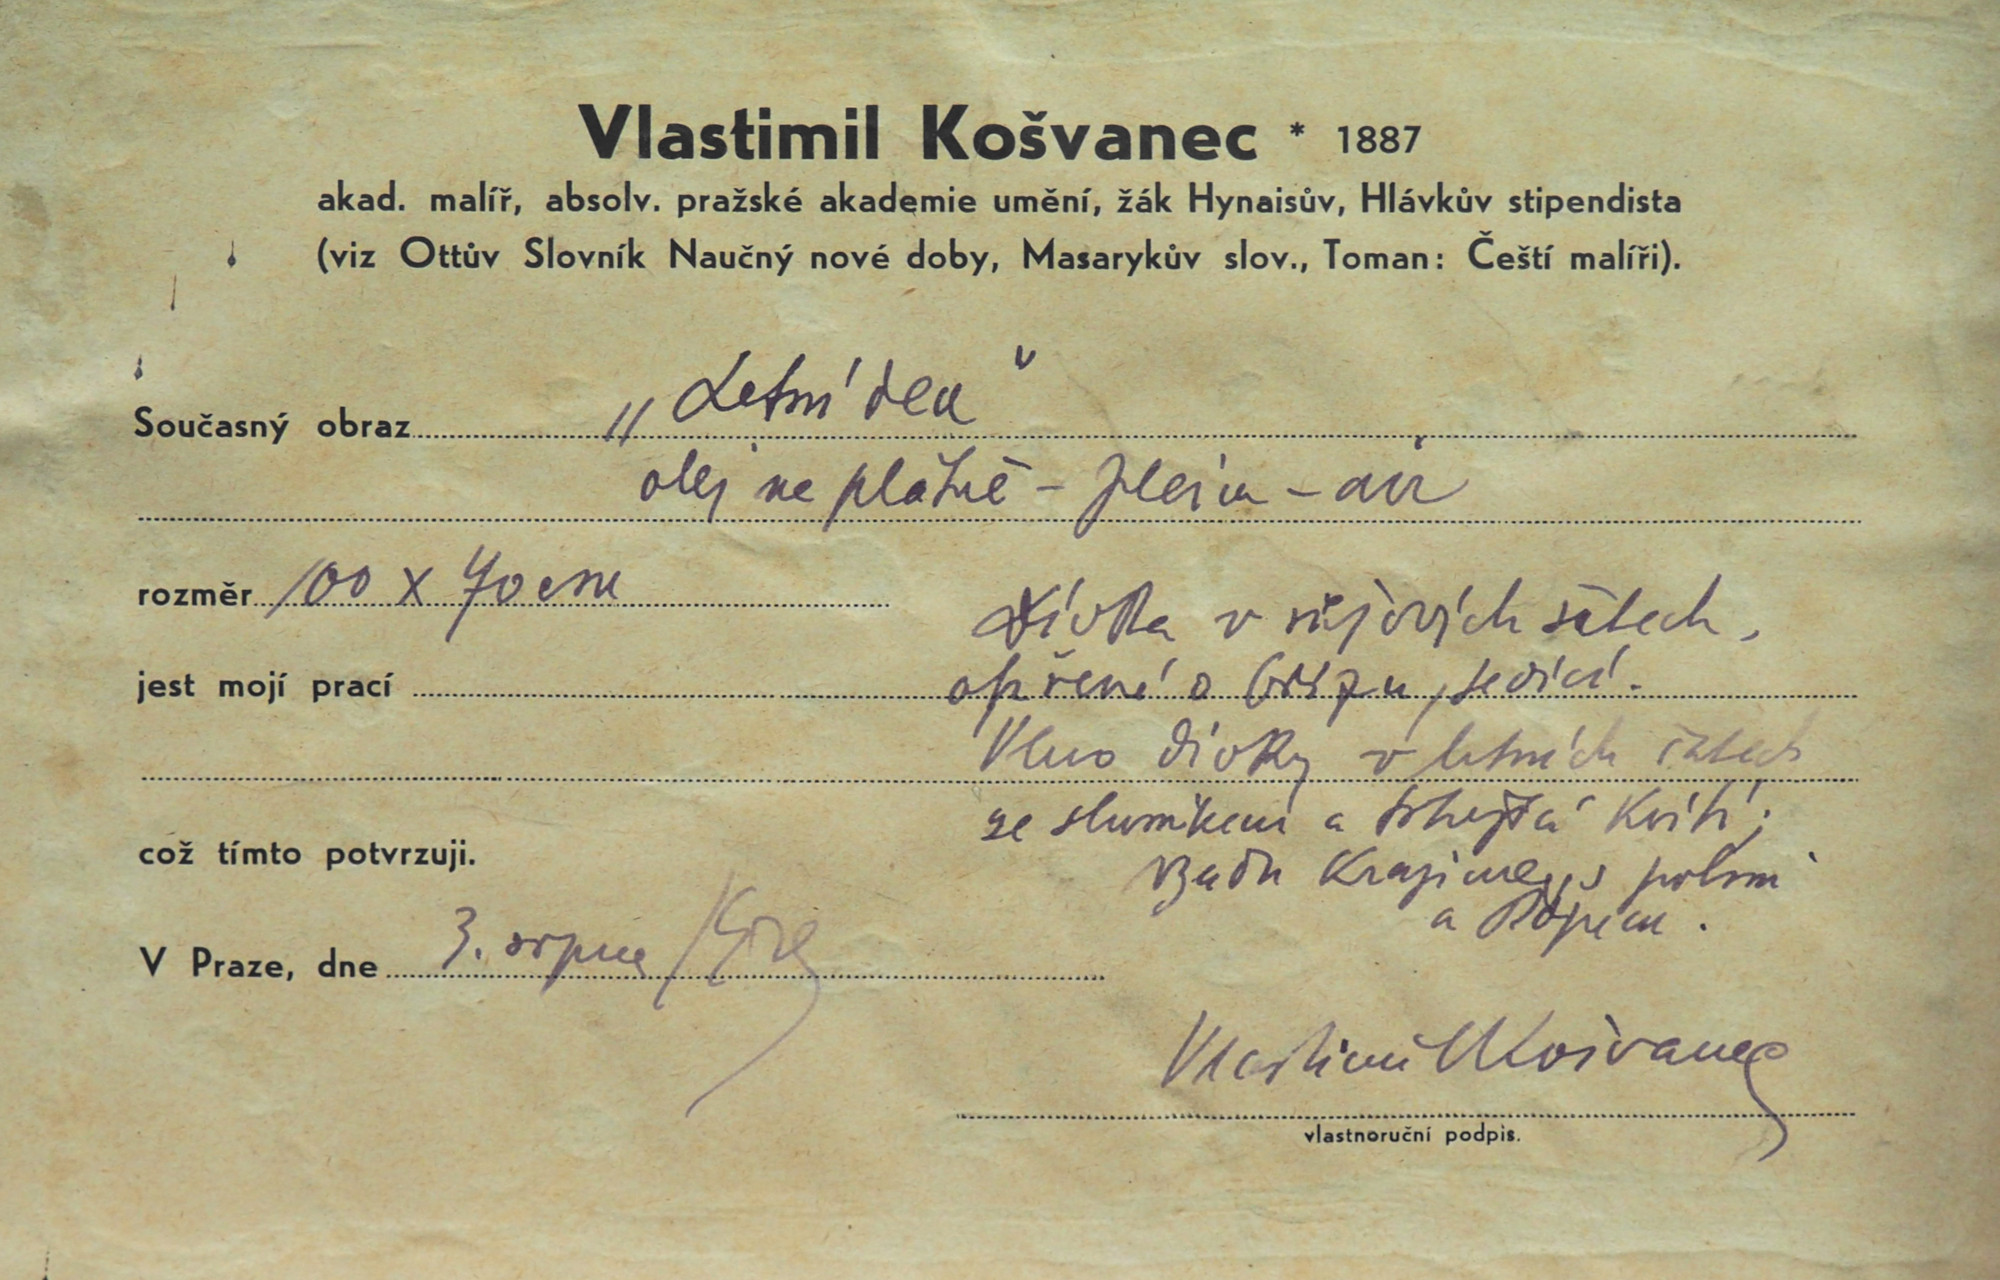 Vlastimil Košvanec * 1887
akad. malíř, absolv. pražské akademie umění, žák Hynaisův, Hlávkův stipendista
(viz Ottův Slovník Naučný nové doby, Masarykův slov., Toman: Čeští malíři).
Současný obraz „Letní den“
olej na plátně - plein - air
rozměr 100 x 70 cm
Dívka v růžových šatech,
jest mojí prací opřená o břízu, sedící.
Vlevo dívky v letních šatech
se slunníkem a trhající kvítí;
což tímto potvrzuji.
Vzadu krajina s polem
a
V Praze, dne 3. srpna
Vlastimil Košvanec
vlastnoruční podpis.